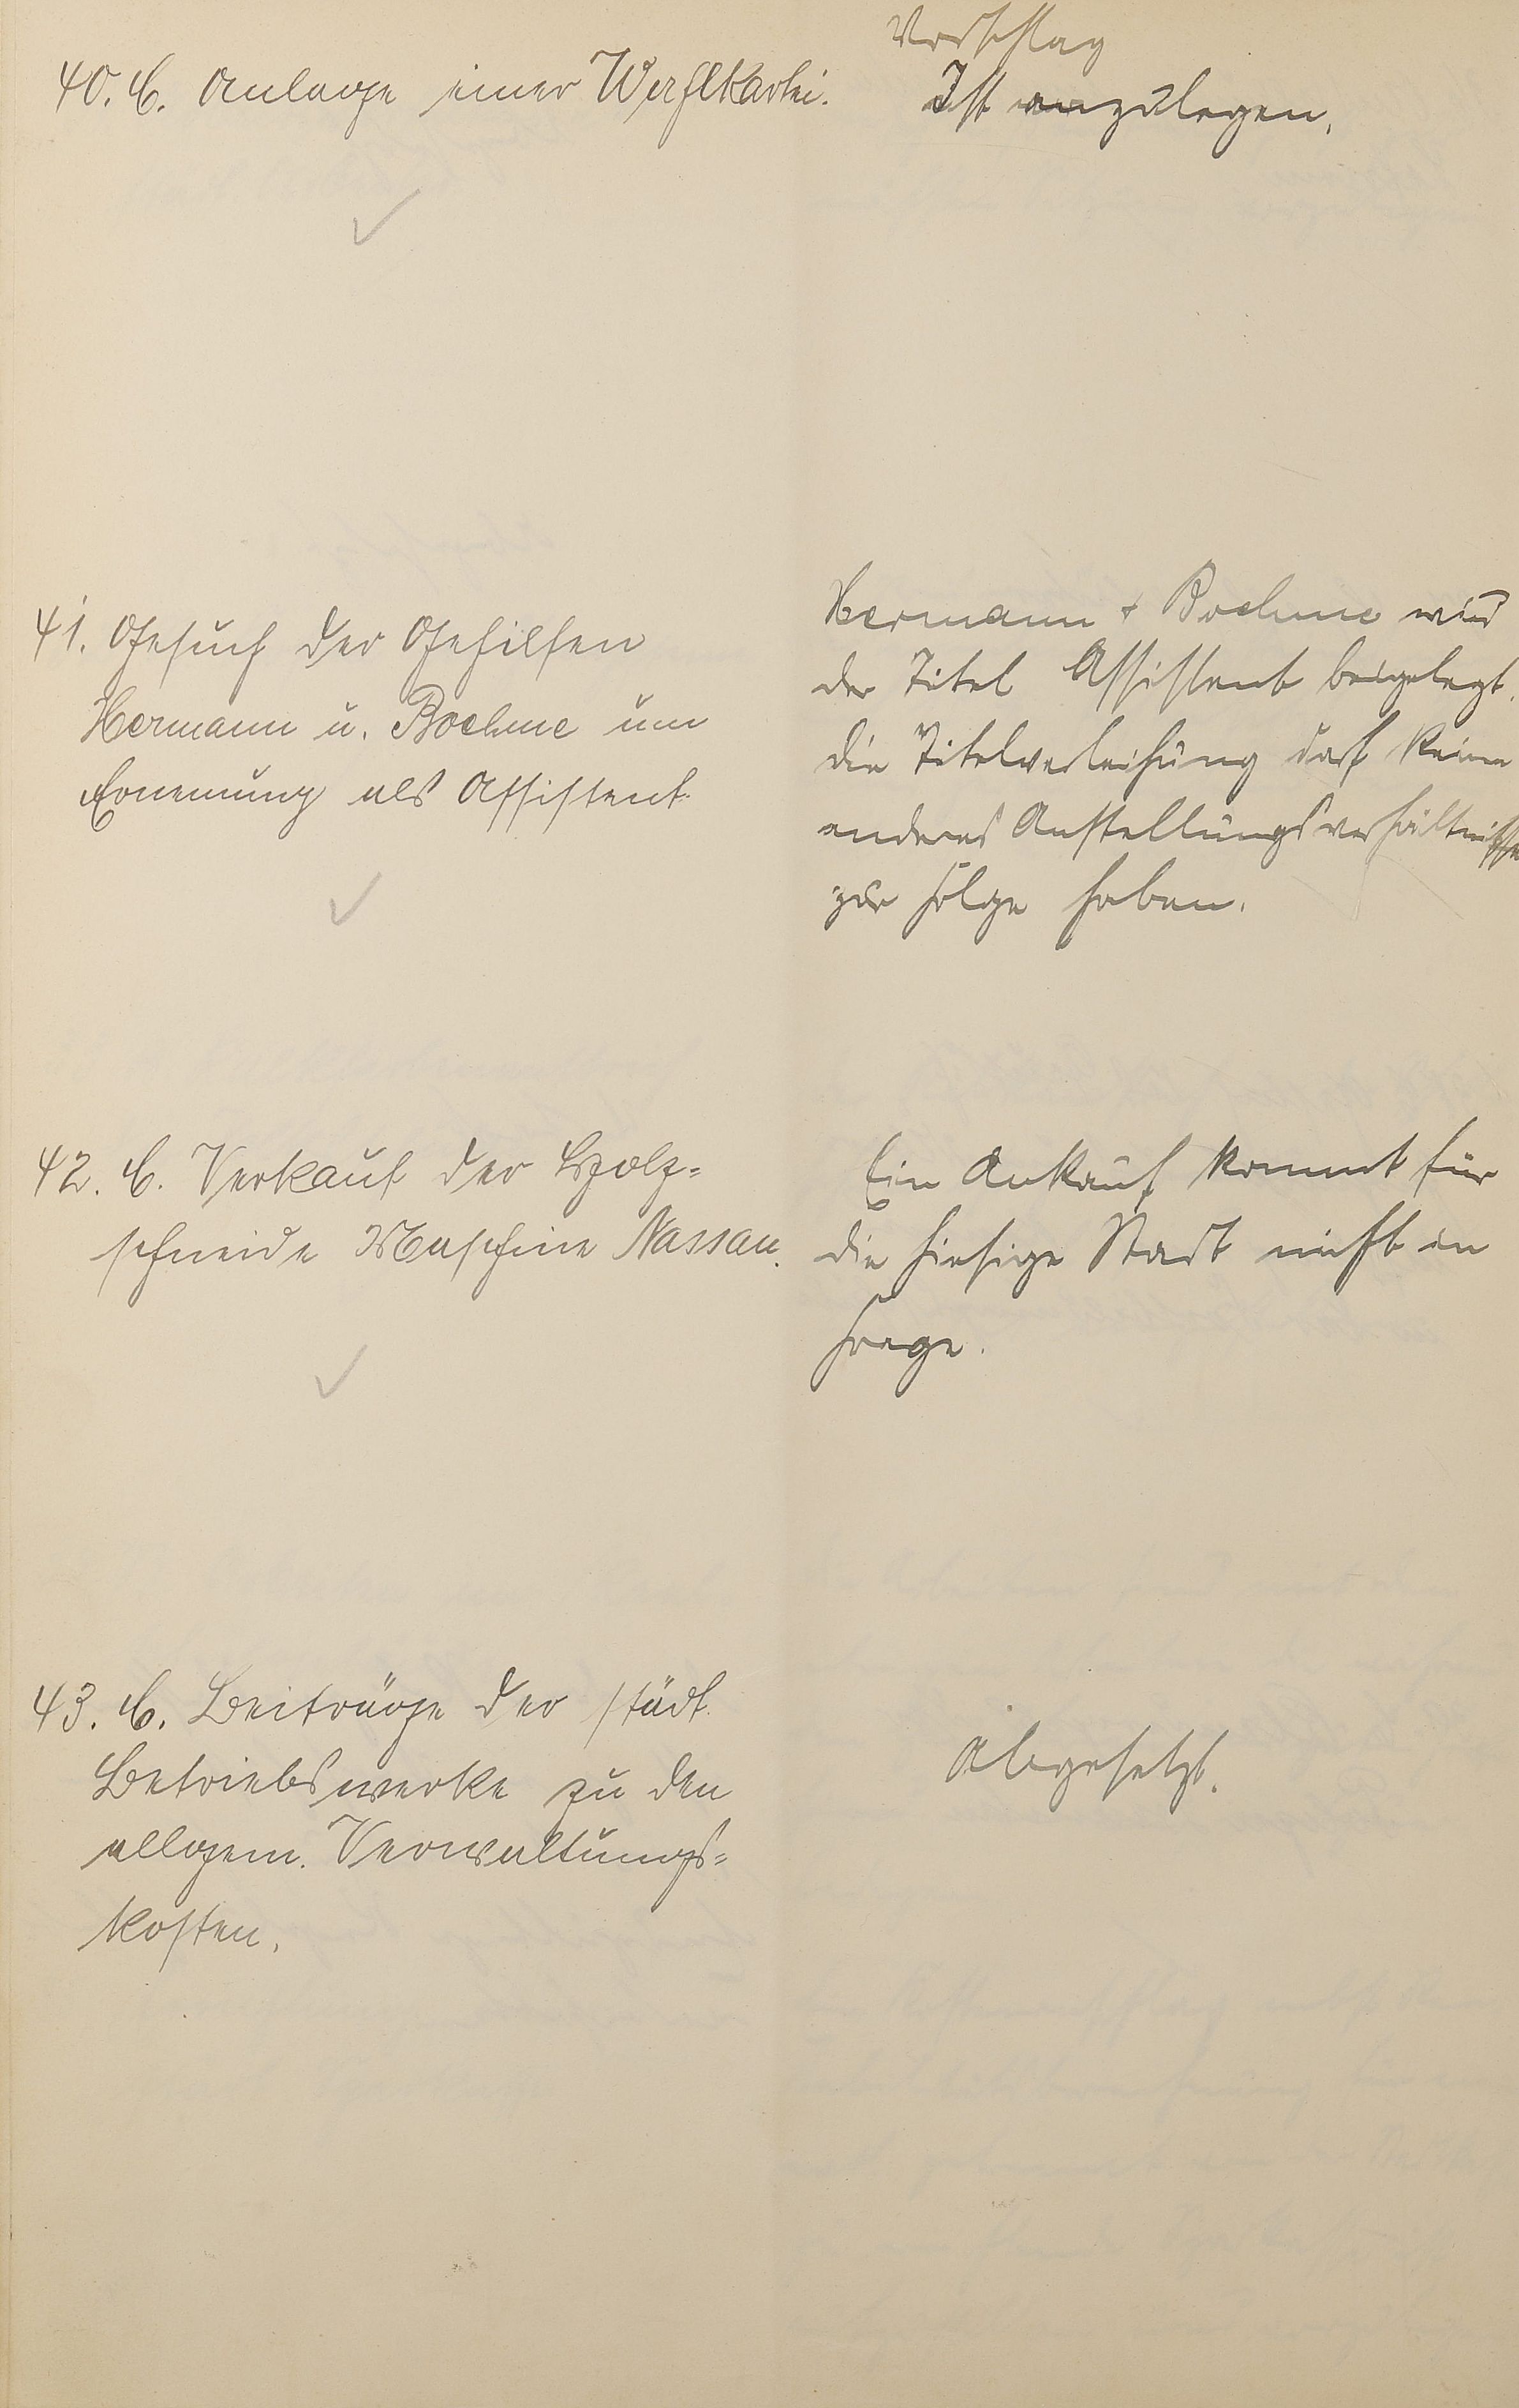 40. C. Anlage einer Wahlkartei.
Vorschlag
Ist anzulegen.
41. Gesuch der Gehilfen
Hermann u. Boehme um
Ernennung als Assistent.
Hermann + Boehme wird
der Titel Assistent beigelegt.
die Titelverleihung darf keine
anderes Anstellungsverhältnisse
zur Folge haben.
42. C. Verkauf der Holz=
schneide Maschine Nassau.
Ein Ankauf kommt für
die hiesige Stadt nicht in
Frage.
43. C. Beiträge der städt.
Betriebswerke zu den
allgem. Verwaltungs=
kosten.
Abgesetzt.